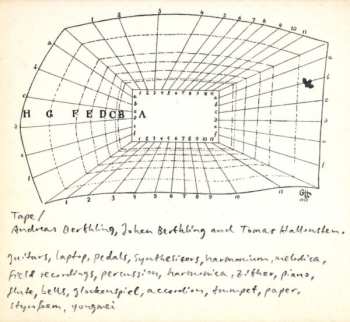 H G F E D C B A
1 2 3 4 5 6 7 8 9 10 11
Tape/
Andreas Berthling, Johan Berthling and Tomas Hallonsten.
guitars, laptop, pedals, synthesisers, harmonium, melodica,
field recordings, percussion, harmonica, zither, piano,
flute, bells, glockenspiel, accordion, trumpet, paper,
styrofoam, yongmei